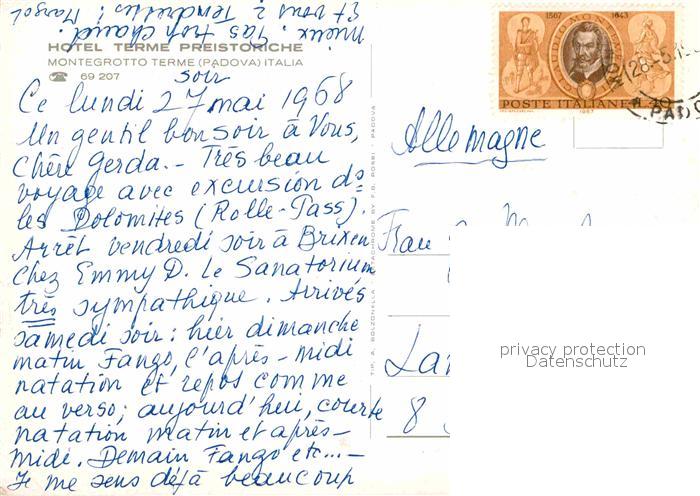 HOTEL TERME PREISTORICHE
MONTEGROTTO TERME (PADOVA) ITALIA
☎ 69 207
soir
Ce lundi 27 mai 1968
Un gentil bonsoir à Vous,
chère Gerda. - Très beau
voyage avec excursion ds
les Dolomites (Rolle-Pass).
Arrêt vendredi soir à Brixen
chez Emmy D. Le Sanatorium
très sympathique. Arrivés
samedi soir: hier dimanche
matin Fango, l'après-midi
natation et repos comme
au verso; aujourd'hui, courte
natation matin et après-
midi. Demain Fango etc... -
Je me sens déjà beaucoup
mieux. Pas trop chaud.
Et vous? Tendresses! Margot
TIP. A. BOLZONELLA - BY F.B. ROSSI - PADOVA
1567 1643
CLAUDIO MONTEVERDI
POSTE ITALIANE L. 40
1967
28-5-19
PADO
Allemagne
Frau
Lan
8
privacy protection
Datenschutz